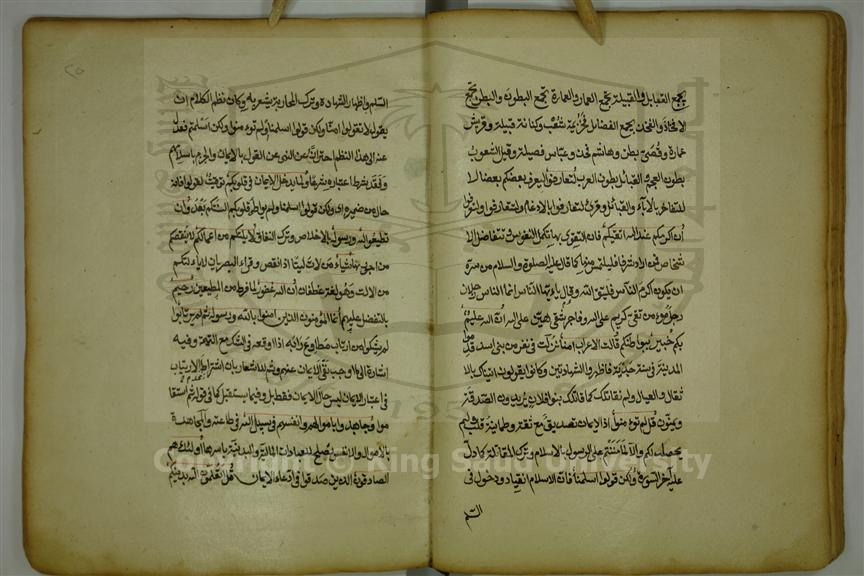 يجمع القبايل والقبيلة يجمع العمائر والعمارة تجمع البطون والبطن يجمع
الافخاذ والفخذ يجمع الفضائل فخزيمة شعب وكنانة قبيلة وقريش
عمارة وقصي بطن وهاشم فخذ وعباس فصيلة وقيل الشعوب
بطون العجم والقبائل بطون العرب لتعارفوا ليعرف بعضكم بعضا لا
للتفاخر بالآباء والقبائل وقرئ لتعارفوا بالادغام ولتتعارفوا ولتعرفوا
أن اكرمكم عند الله اتقيكم فان التقوى بها تكمل النفوس وتتفاضل الا
شخاص فمن اراد شرفا فليلتمس منها كما قال عليه الصلوة والسلام من سره
ان يكون اكرم الناس فليتق الله وقال يا ايها الناس انما الناس رجلان
رجل مؤمن تقي كريم على الله وفاجر شقي هين على الله ان الله عليم
بكم خبير ببواطنكم قالت الاعراب آمنا نزلت في نفر من بني اسد قدموا
المدينة في سنة جدبة فاظهروا الشهادتين وكانوا يقولون اتيناك بالا
ثقال والعيال ولم نقاتلك كما قاتلك بنو فلان يريدون الصدقة
ويمنون قل لم تؤمنوا اذ الايمان تصديق مع ثقة وطمانينة قلب ولم
يحصل لكم والا لما مننتم على الرسول بالاسلام وترك المقاتلة كما دل
عليه آخر السورة ولكن قولوا اسلمنا فان الاسلام انقياد ودخول في
السلم
السلم واظهار الشهادة وترك المحاربة يشعر به وكان نظم الكلام ان
يقول لا تقولوا امنا ولكن قولوا اسلمنا او لم تؤمنوا ولكن اسلمتم فعدل
عنه الى هذا النظم احترازا عن النهي عن القول بالايمان والجزم باسلامهم
وقد فقد شرط اعتباره شرعا ولما يدخل الايمان في قلوبكم توقيت لقولوا فانه
حال من ضميره اي ولكن قولوا اسلمنا ولم يواطئ قلوبكم السنتكم بعد وان
تطيعوا الله ورسوله بالاخلاص وترك النفاق لا يلتكم من اعمالكم لا ينقصكم
من اجورها شيئا من لات ليتا اذا نقص وقراء البصريان لا يألتكم
من الالت وهو لغة غطفان ان الله غفور لما فرط من المطيعين رحيم
بالتفضل عليهم انما المؤمنون الذين امنوا بالله ورسوله ثم لم يرتابوا
لم يشكوا من ارتاب مطاوع رابه اذا اوقعه في الشك مع التهمة وفيه
اشارة الى ما اوجب نفي الايمان عنهم وثم للاشعار بان اشتراط الارتياب
في اعتبار الايمان ليس حال الايمان فقط بل وفيما يستقبل كما في قوله ثم استقا
موا وجاهدوا باموالهم وانفسهم في سبيل الله في طاعته والمجاهدة
بالاموال والانفس تصلح للعبادات المالية والبدنية باسرها اولئك هم
الصادقون الذين صدقوا في ادعاء الايمان قل اتعلمون الله بدينكم
Copyright © King Saud University
1957